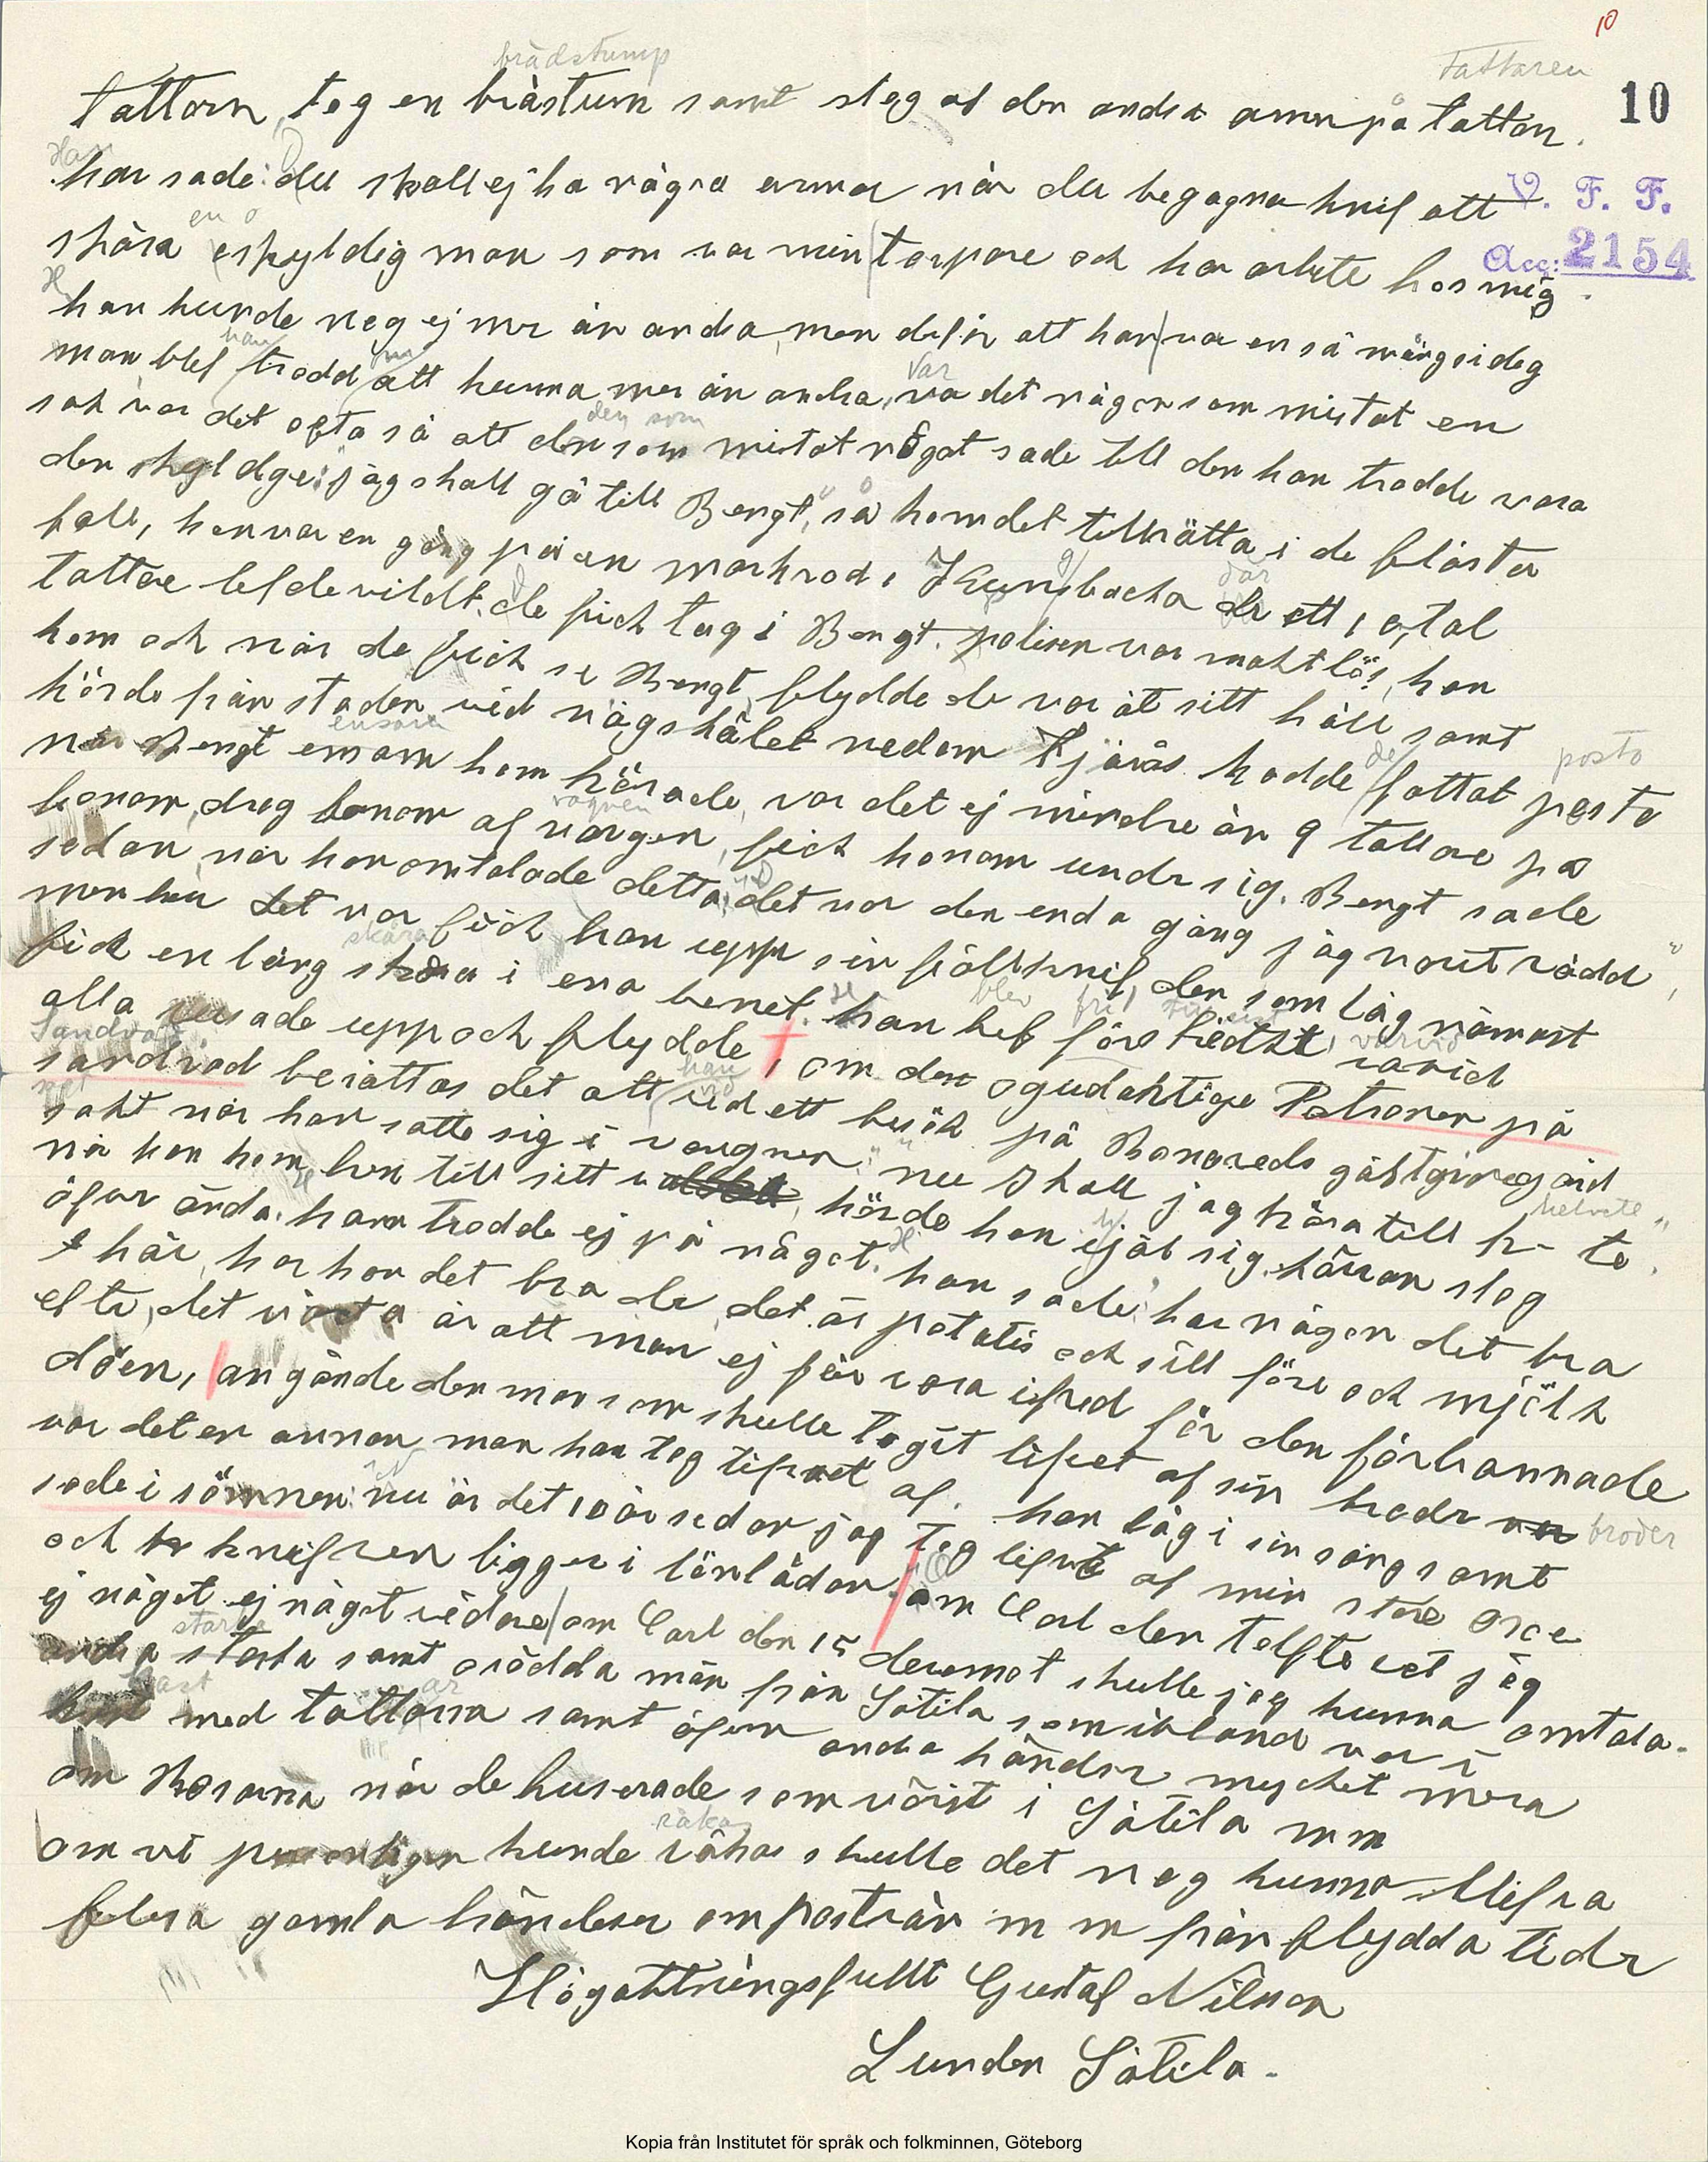 10
brädstump
Tattaren
10
tattarn, tog en brästum samt slog af den andra armen på tattarn.
Han
han sade: du skall ej ha några armar när du begagnar knif att
V. F. F.
en o
skära eskyldig man som var min torpare och har arbete hos mig.
Acc: 2154
han kunde nog ej mer än andra, men derför att han var en så märgsideg
han
man blef trodd att kunna mer än andra, va det någon som mistat en
Var
sak var det ofta så att den som mistat något sade till den han trodde vara
den som
den skyldige: jag skall gå till Bengt, så kom det tillrätta i de flästa
fall, han var en gång på en marknad i Kungsbacka der ett 10,tal
där
tattare lefde vildt. de fick tag i Bengt. polisen var maktlös, han
kom och när de fick se Bengt, flydde de var åt sitt håll samt
körde från staden vid vägskälet nedom Fjärås hade de fattat posto
posto
när Bengt emsam kom körande, var det ej mindre än 9 tattare på
ensam
honom, drog honom af vangen, fick honom under sig. Bengt sade
vagnen
sedan när han omtalade detta: det var den enda gång jag varit rädd,
men hur det var fick han upp sin fällknif, den som låg närmast
skåra
fick en lång skåra i ena benet. han bef före trädst, varid
blev
varvid
alla rusade upp och flydde, om den ogudaktige Patronen på
Sandvad
sandvad berättas det att vid ett besök på Bonareds gästgivergård
han
sakt när han satte sig i vangnen: nu skall jag köra till h-te,
helvete
när han kom hem till sitt, hörde han ihjäl sig. kärran slog
öfver ända. han trodde ej på något. han sade: har någon det bra
här, har han det bra der, det är potatis och sill före och mjölk
efter, det värsta är att man ej får vara ifred för den förbannade
döen, angånde den man som skulle tagit lifvet af sin broder
broder
var det en annan man han tog lifvet af. han låg i sin säng samt
sade i sömnen: nu är det 10 år sedan jag tog lifvet af min store
och knifven ligger i lönlådan. om Carl den tolfte vet jag
ej något ej något vidare om Carl den 15 deremot skulle jag kunna omtala.
starka
andra starka samt orädda män från Sätila som ibland var i
kast
kast med tattarna samt äfven andra händer mycket mera
om Bosarna när de huserade som värst i Sätila mm
råkas
om vi personligen kunde råkas skulle det nog kunna blifva
flera gamla händelser om posträn m m från flydda tider
Högaktningsfullt Gustaf Nilsson
Lunden Sätila.
Kopia från Institutet för språk och folkminnen, Göteborg